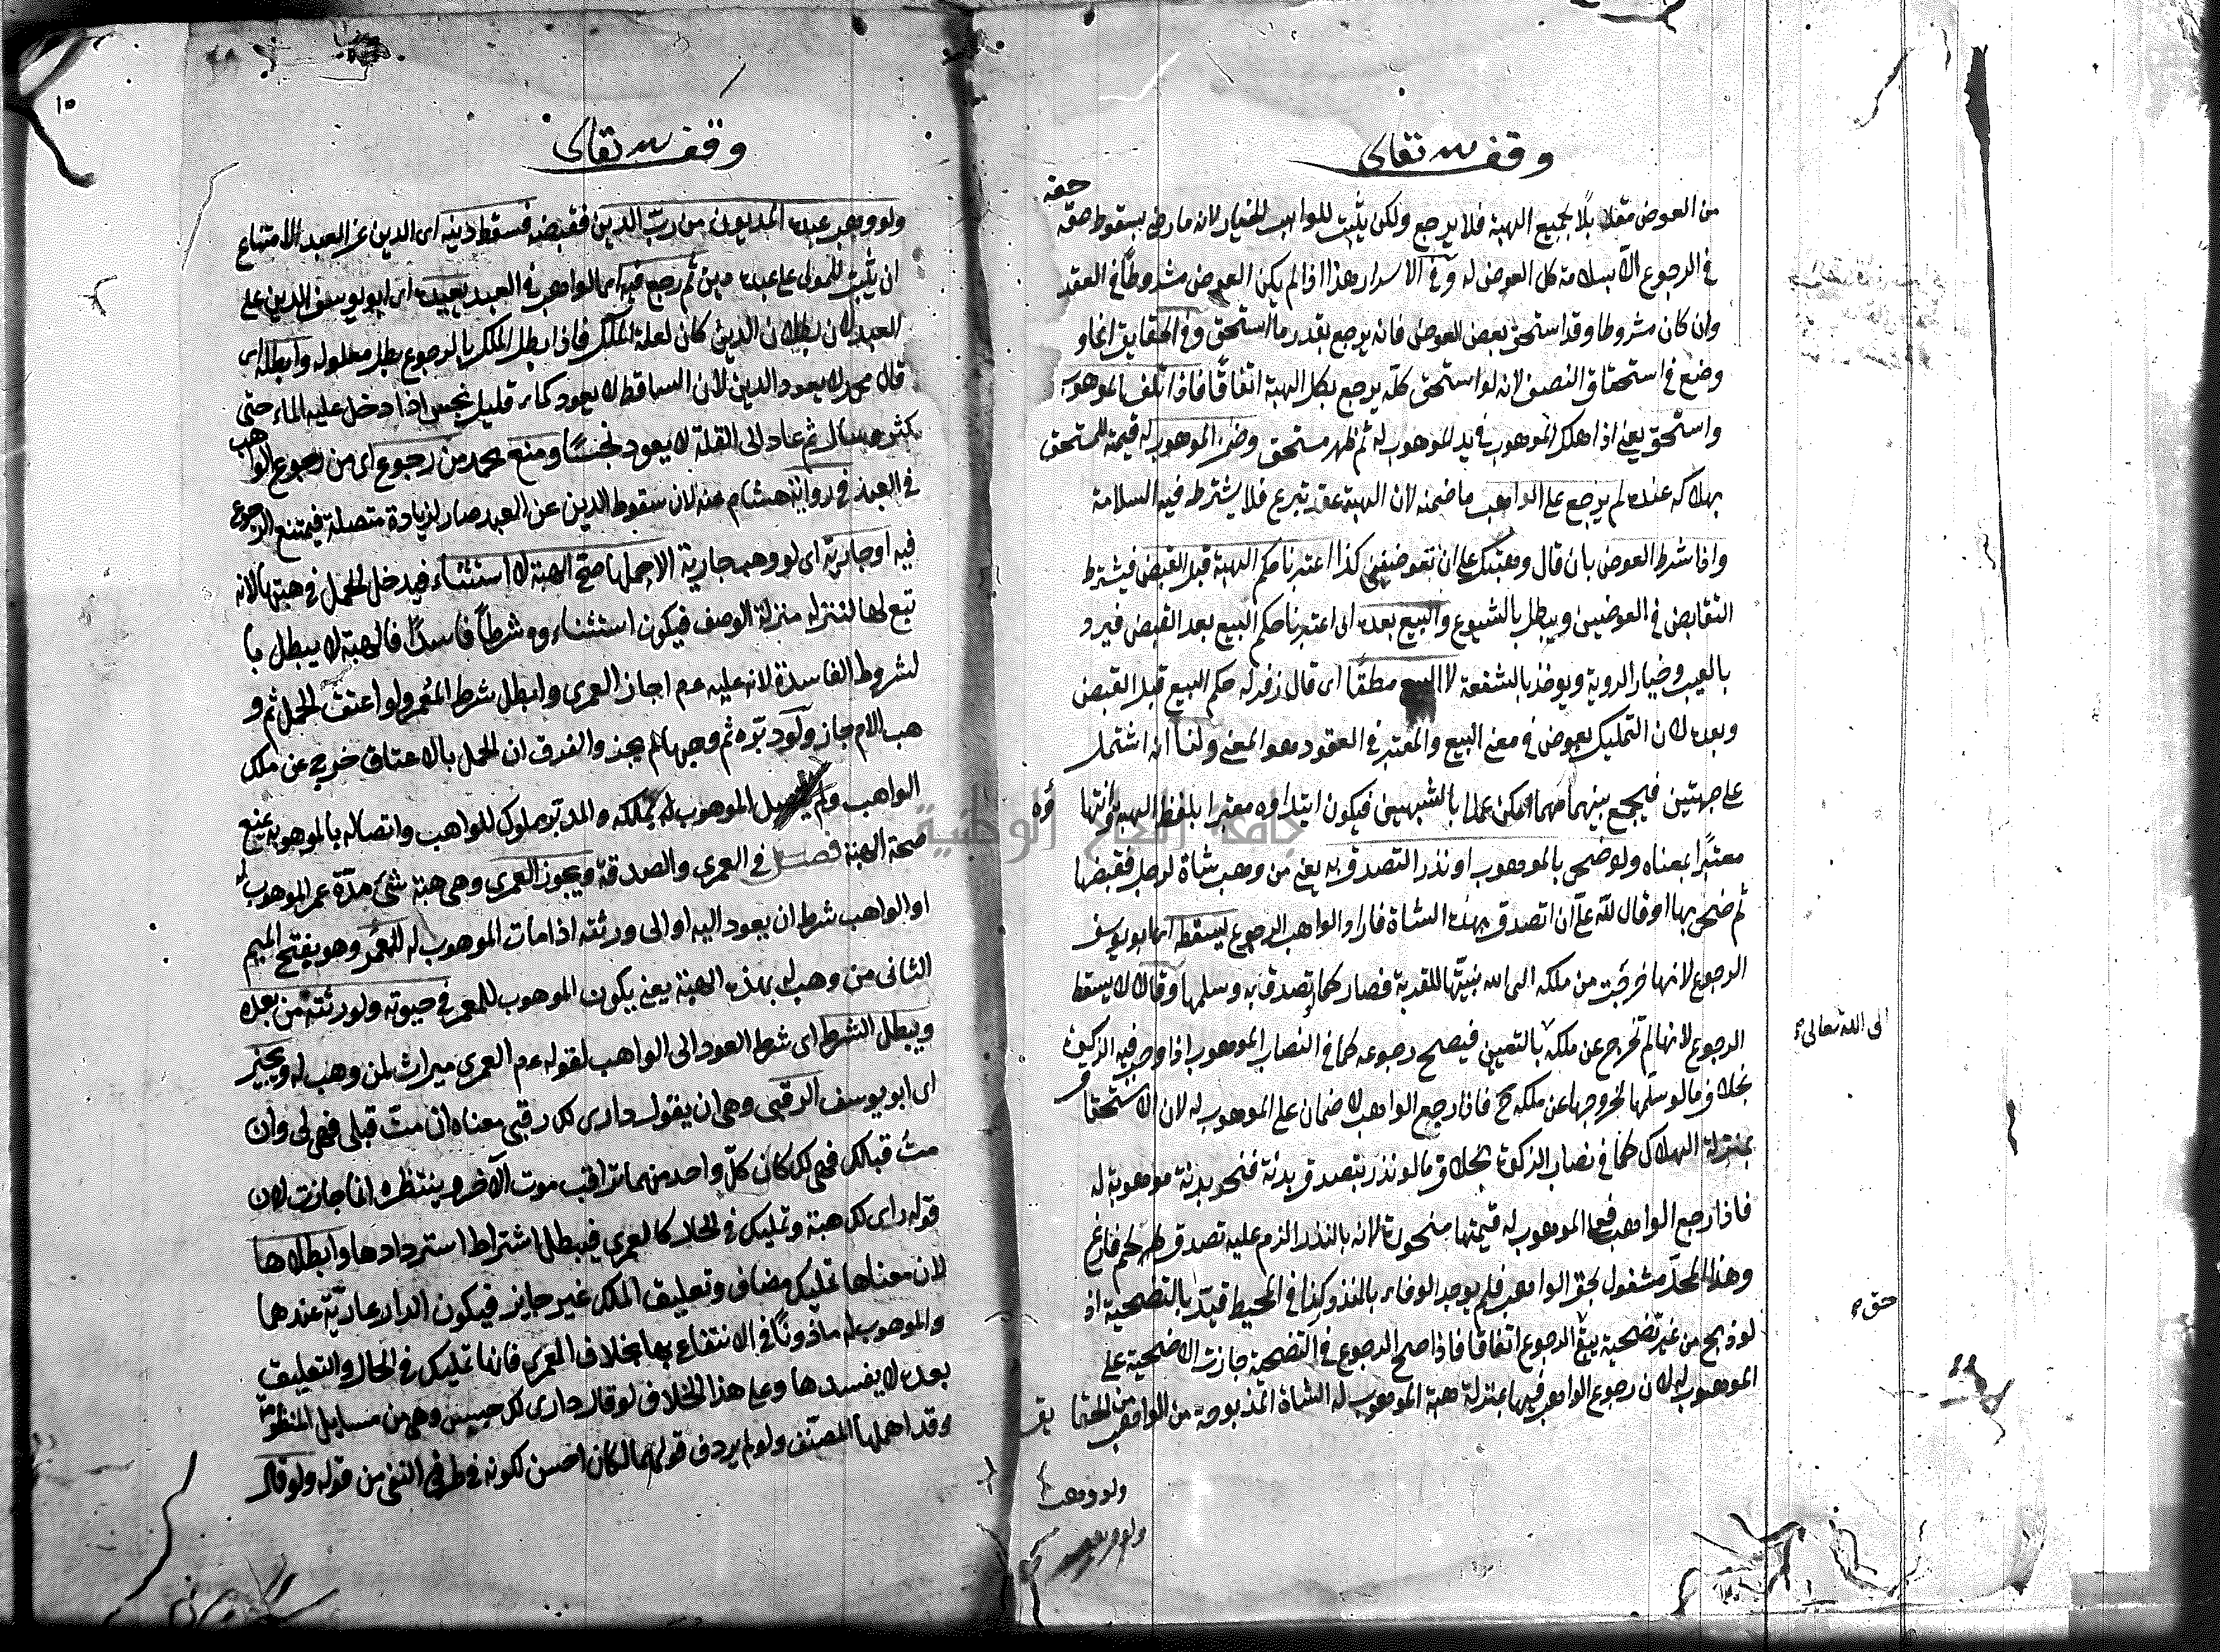 وقف لله تعالى
من العوض مقابلا بجميع الهبة فلا يرجع ولكن يثبت للواهب الخيار لانه ما رضى بسقوط حقه
في الرجوع الا بسلامة كل العوض له وفي الاسرار هذا اذا لم يكن العوض مشروطا في العقد
وان كان مشروطا وقد استحق بعض العوض فانه يرجع بقدر ما استحق وفي الحقايق انما و
وضع في استحقاق النصف لانه لو استحق كله يرجع بكل الهبة اتفاقا فاذا تلف الموهوب
واستحق يعني اذا هلك الموهوب في يد الموهوب له ثم ظهر مستحق وضمن الموهوب له قيمته للمستحق
بهلاكه عنده لم يرجع على الواهب ما ضمنه لان الهبة عقد تبرع فلا يشترط فيه السلامة
واذا شرط العوض بان قال وهبتك على ان تعوضني كذا اعتبرنا حكم الهبة قبل القبض فيشترط
التقابض في العوضين ويبطل بالشيوع والبيع بعده اى اعتبرنا حكم البيع بعد القبض فيرد
بالعيب وخيار الروية ويوخذ بالشفعة لا البيع مطقا اى قال زفر له حكم البيع قبل القبض
وبعده لان التمليك بعوض في معنى البيع والمعتبر في العقود هو المعنى ولنا انه اشتمل
على جهتين فيجمع بينهما مهما امكن عملا بالشبهين فيكون ابتداوه معتبرا بلفظ الهبة وانتها وه
معتبرا بمعناه ولو ضحى بالموهوب او نذر التصدق به يعني من وهب شاة لرجل فقبضها
ثم ضحى بها او قال لله على ان اتصدق بهذه الشاة فاراد الواهب الرجوع يسقطه اى ابو يوسف
الرجوع لانها خرجت من ملكه الى الله بنيتها للقربة فصار كما تصدق به وسلمها وقالا لا يسقط
الى الله تعالى
الرجوع لانها لم تخرج عن ملكه بالتعيين فيصح رجوعه كما في النصاب الموهوب اذا وجب فيه الزكوة
بخلاف ما لو سلمها لخروجها عن ملكه ح فاذا رجع الواهب لا ضمان على الموهوب له لان الاستحقاق
بمنزلة الهلاك كما في نصاب الزكوة بخلاف ما لو نذر بتصدق بدنة فنحر بدنة موهوبة له
فاذا رجع الواهب فعلى الموهوب له قيمتها منحورة لانه بالنذر الزم عليه تصدق لحم فارغ
حق
وهذا المحل مشغول بحق الواهب فلم يوجد الوفاء بالنذر كذا في المحيط قيد بالتضحية اذ
لو ذبح من غير تضحية يبقى الرجوع اتفاقا فاذا صح الرجوع في التضحية جازت الاضحية على
الموهوب له لان رجوع الواهب فيها بمنزلة هبة الموهوب له الشاة المذبوحة من الواهب
ولو وهب
وقف لله تعالى
ولو وهب عبده المديون من رب الدين فقبضه فسقط دينه اى الدين عن العبد لامتناع
ان يثبت للمولى على عبده دين ثم رجع فيه اى الواهب في العبد يعيده اى ابو يوسف الدين على
العبد لان بطلان الدين كان لعلة الملك فاذا بطل الملك بالرجوع بطل معلوله وابطله اى
قال محمد لا يعود الدين لان الساقط لا يعود كماء قليل نجس اذا دخل عليه الماء حتى
كثر وسال ثم عاد الى القلة لا يعود نجسا ومنع محمد من رجوع اى من رجوع الواهب
في العبد في رواية هشام عنه لان سقوط الدين عن العبد صار لزيادة متصلة فيمتنع الرجوع
فيه او جارية اى لو وهب جارية الا حملها صح الهبة لا استثناء فيدخل الحمل في هبتها لانه
تبع لها لتنزله منزلة الوصف فيكون استثناءوه شرطا فاسدا فالهبة لا يبطل با
لشروط الفاسدة لانه عليه عم اجاز العمرى وابطل شرط المعمر ولو اعتق الحمل ثم و
هب الام جاز ولو دبره ثم وهبها لم يجز والفرق ان الحمل بالاعتاق خرج عن ملك
الواهب ولم الموهوب له يملكه والمدبر مملوك للواهب واتصاله بالموهوب يمنع
صحة الهبة فصل في العمرى والصدقة ويجوز العمرى وهى هبة شئ مدة عمر الموهوب له
او الواهب شرط ان يعود اليه او الى ورثته اذا مات الموهوب له للمعمر وهو بفتح الميم
الثانى من وهب له بهذه الهبة يعني يكون الموهوب للمعمر في حيوته ولورثته من بعده
ويبطل الشرط اى شرط العود الى الواهب لقوله عم العمرى ميراث لمن وهب له ويجيز
اى ابو يوسف الرقبى وهى ان يقول دارى لك رقبى معناه ان مت قبلى فهى لى وان
مت قبلك فهى لك كان كل واحد منهما يراقب موت الآخر وينتظره انما جازت لان
قوله دارى لك هبة وتمليك في الحال كالعمرى فيبطل اشتراط استردادها وابطلاها
لان معناها تمليك مضاف وتعليق الملك غير جايز فيكون الدار عارية عندهما
والموهوب له ماذونا في الانتفاع بها بخلاف العمرى فانها تمليك في الحال والتعليق
بعده لا يفسدها وعلى هذا الخلاف لو قال دارى لك حبيس وهى من مسايل المنظومة
وقد اهملها المصنف ولو لم يردف قولهما لكان احسن لكونه في طرفى النفى من قوله ولو قال